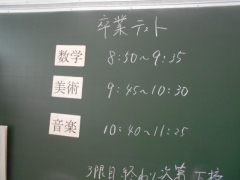 卒業テスト
数学 8:50〜9:35
美術 9:45〜10:30
音楽 10:40〜11:25
3限目終わり次第下校